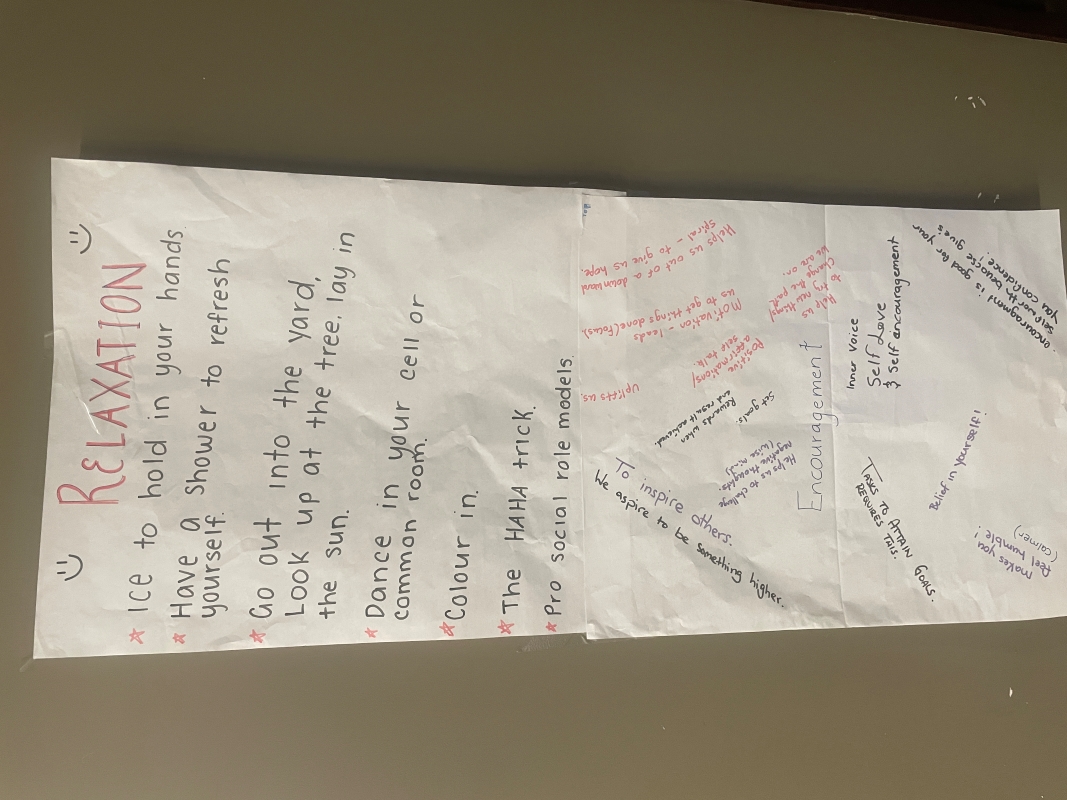 ☺ RELAXATION ☺
* Ice to hold in your hands
* Have a shower to refresh
yourself.
* Go out into the yard,
Look up at the tree, lay in
the sun.
* Dance in your cell or
common room.
* Colour in.
* The HAHA trick.
* Pro social role models.
Helps us out of a downward
spiral - to give us hope.
Motivation - leads
us to get things done (focus)
Uplifts us.
Positive
affirmations/
self talk.
Help us
to try new things/
change the path
we are on.
Set goals.
Rewards when
and result achieved.
Helps us to challenge
negative thoughts.
(wise mind)
To inspire others.
We aspire to be something higher.
Encouragement
Inner Voice
Self Love
& self encouragement
encouragment is good for your
self worth because give's
you confidence.
TASKS TO ATTAIN GOALS.
REQUIRES THIS.
Belief in yourself!
makes you
feel humble!
(calmer)